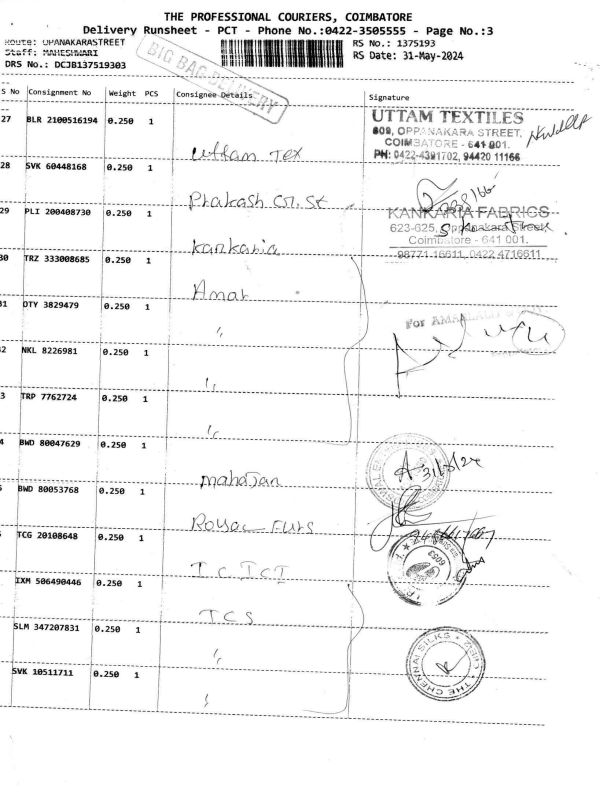 THE PROFESSIONAL COURIERS, COIMBATORE
Delivery Runsheet - PCT - Phone No.:0422-3505555 - Page No.:3
Route: OPANAKARASTREET
RS No.: 1375193
Staff: MAHESHWARI
RS Date: 31-May-2024
DRS No.: DCJB137519303
BIG BAG DELIVERY
S No Consignment No Weight PCS Consignee Details Signature
27 BLR 2100516194 0.250 1 Uttam Tex
UTTAM TEXTILES
609, OPPANAKARA STREET,
COIMBATORE - 641 001.
PH: 0422-4391702, 94420 11166
28 SVK 60448168 0.250 1 Prakash
29 PLI 200408730 0.250 1 Kankaria
KANKARIA FABRICS
623-625, Oppanakara Street
Coimbatore - 641 001.
98771 16611, 0422 4716611
30 TRZ 333008685 0.250 1 Amar
31 DTY 3829479 0.250 1 "
For
32 NKL 8226981 0.250 1 "
3 TRP 7762724 0.250 1 "
4 BWD 80047629 0.250 1 Mahajan
31/5/24
BWD 80053768 0.250 1 Royal Furs
TCG 20108648 0.250 1 ICICI
IXM 506490446 0.250 1 TCS
SLM 347207831 0.250 1 "
THE CHENNAI SILKS
SVK 10511711 0.250 1 "